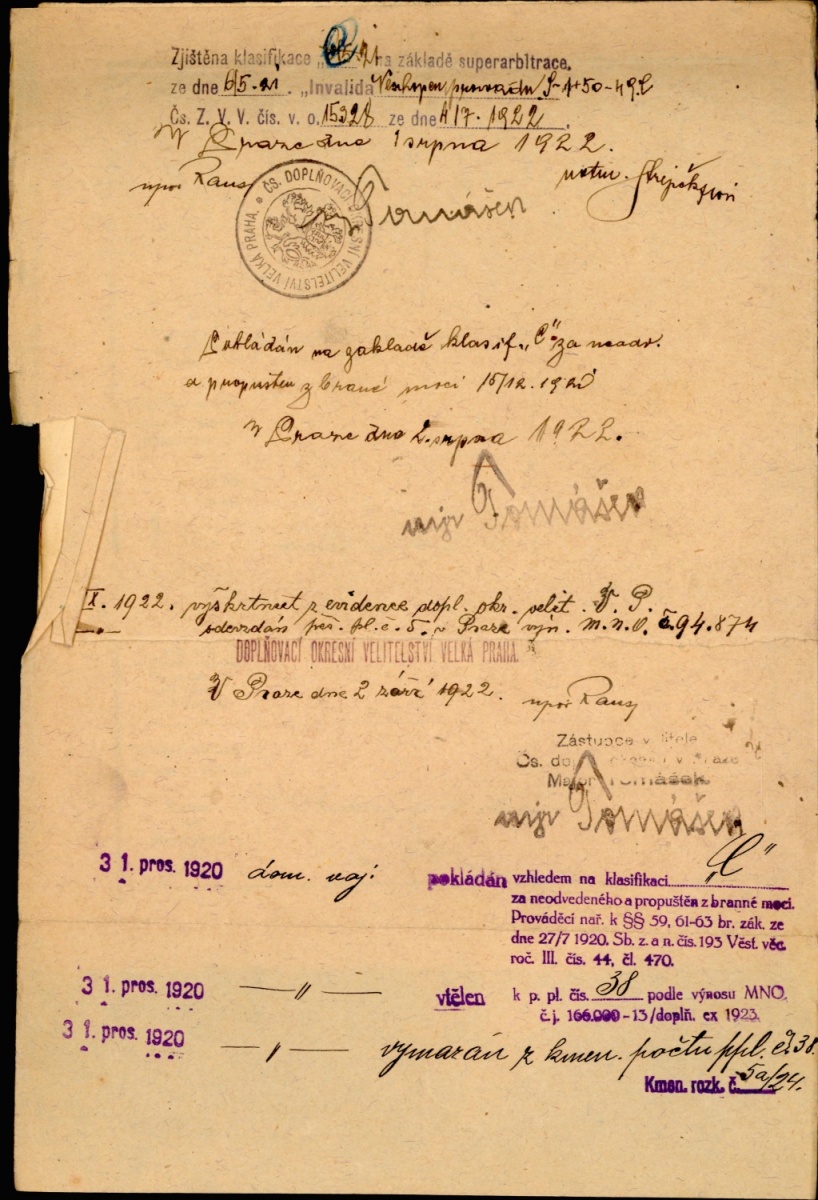 Zjištěna klasifikace „ na základě superarbitrace.
ze dne 6/5. 21. „Invalida Neschopen
Čs. Z. V. V. čís. v. o. 15328 ze dne 4/7. 1922.
V Praze dne 1 srpna 1922.
npor Raus
Tomášek
ČS. DOPLŇOVACÍ OKRESNÍ VELITELSTVÍ VELKÁ PRAHA.
Pokládán na zakladě klasif. „C" za neodv.
a propuštěn z branné moci 15/12. 1920
V Praze dne 2. srpna 1922.
mjr Tomášek
IX. 1922. vyškrtnut z evidence dopl. okr. velit. V. P.
odevzdán pěš. pl. č. 5. v Praze výn. m. n. o. č. 94.874
DOPLŇOVACÍ OKRESNÍ VELITELSTVÍ VELKÁ PRAHA.
V Praze dne 2 září 1922. npor Raus
Zástupce velitele
Čs. dopl. okresní v Praze
Major Tomášek
mjr Tomášek
31. pros. 1920 dom. voj. pokládán vzhledem na klasifikaci „C"
za neodvedeného a propuštěn z branné moci.
Prováděcí nař. k §§ 59, 61-63 br. zák. ze
dne 27/7 1920. Sb. z. a n. čís. 193 Věst. věc.
roč. III. čís. 44, čl. 470.
31. pros. 1920 —„— vtělen k p. pl. čís. 38 podle výnosu MNO.
č. j. 166.000-13/doplň. ex 1923.
31. pros. 1920 —„— vymazán z kmen. počtu ppl. č. 38.
Kmen. rozk. č. 5a/24.